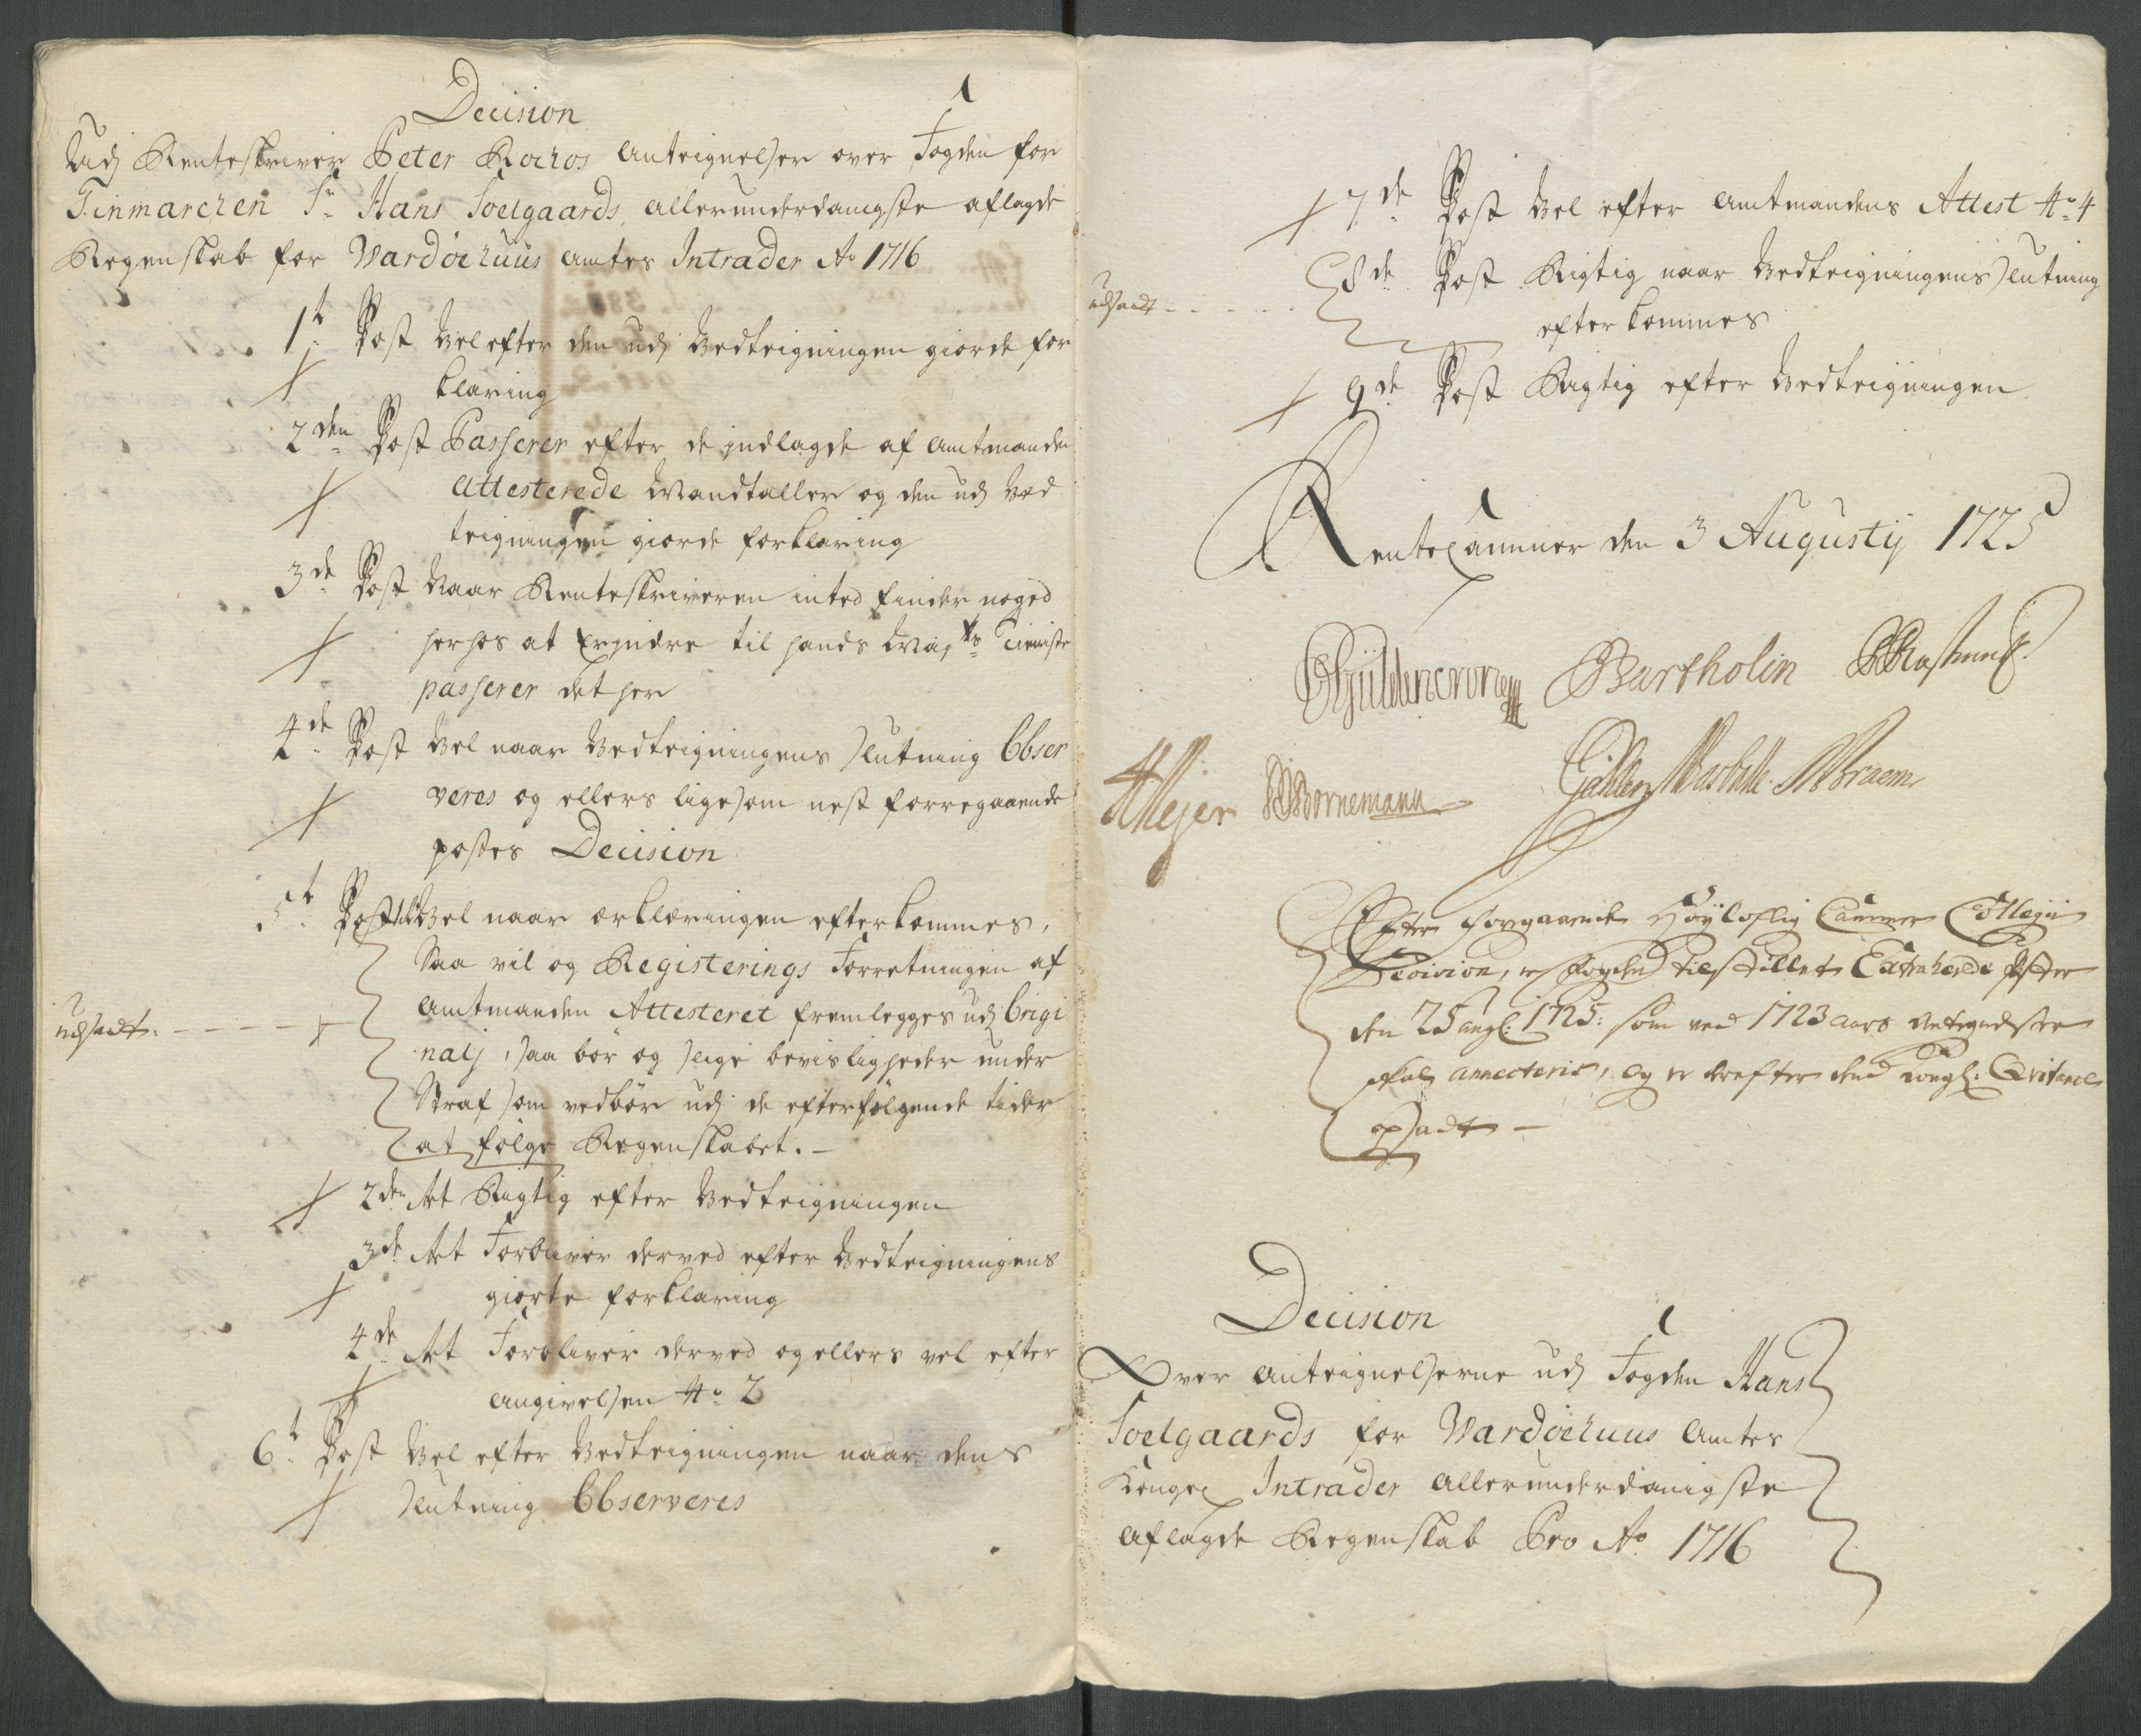 Decision
Udj Renteskriver Peter Kochs Anteignelser over Fogden for
Finmarchen Sr. Hans Soelgaards, allerunderdanigste aflagde
Regenskab for Wardöehuus Amtes Intrader Ao 1716
1t Post Vel efter den udj Vedteigningen giorde for
klaring
2den Post Passerer efter de jndlagde af Amtmanden
Attesterede Mandtaller og den udj Ved
teigningen giorde forklaring
3de Post Naar Renteskriveren intet finder noged
herhos at Erjndre til hands Mayts Tieniste
passerer det her
4de Post Vel naar Vedteigningens slutning Obser
veres og ellers ligesom nest forregaaende
postes Decision
5t Post Vel naar erklæringen efterkommes,
Saa vil og Registerings Forretningen af
Amtmanden Attesteret fremlegges udj Origi
nalj, saa bör og slige bevisligheder under
Straf som vedbör udj de efterfölgende tider
at fölge Regenskabet. -
udsadt. - - - -
2den Art Rigtig efter Vedteigningen
3de Art Forbliver derved efter Vedteigningens
giorte forklaring
4de Art Forbliver derved og ellers vel efter
angivelsen No 2
6t Post Vel efter Vedteigningen naar dens
slutning Observeres
7de Post Vel efter Amtmandens Attest No 4
8de Post Rigtig naar Vedteigningens slutning
efterkommes
udsadt - - - - -
9de Post Rigtig efter Vedteigningen
Rentecammer den 3 Augustij 1725
Güldencrone Bartholin
Meyer Bornemann Braem
Efter forregaaende Höyloflig Cammer Collegii
Decision, er Fogden tilstillet Extraherede Poster
den 25 Augl: 1725: som ved 1723 aars Antegnelser
skal annecteris, og er derefter dend Kongl: Qvitance
udsadt -
Decision
Over Anteignelserne udj Fogden Hans
Soelgaards for Wardöehuus Amtes
Kongel Intrader allerunderdanigste
aflagde Regenskab Pro Ao 1716